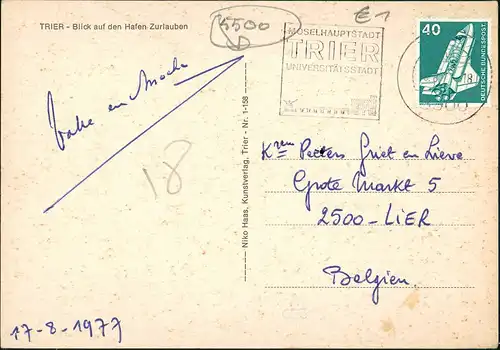 TRIER - Blick auf den Hafen Zurlauben
5500
€1
MOSELHAUPTSTADT
TRIER
UNIVERSITÄTSSTADT
40
DEUTSCHE BUNDESPOST
Vake en Moeke
18
Niko Haas, Kunstverlag, Trier - Nr. 1-158
Kzem Peeters Griet en Lieve
Grote Markt 5
2500-LIER
Belgien.
17-8-1977